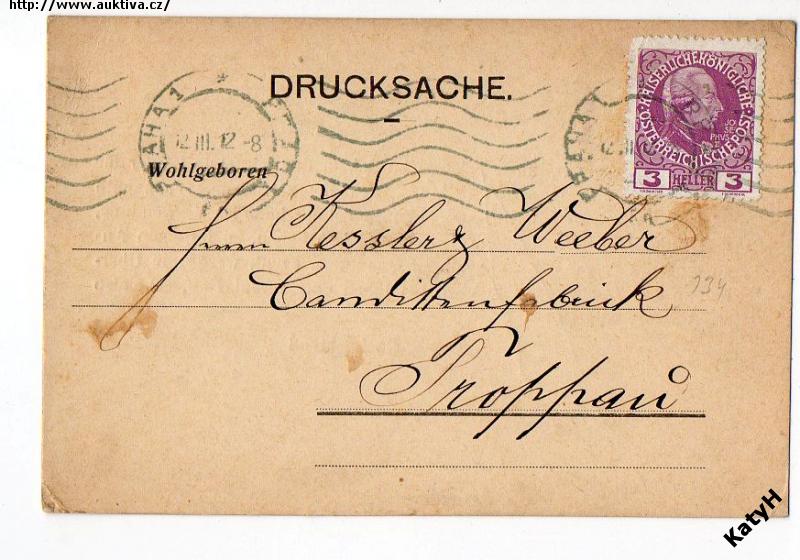 http://www.auktiva.cz/
DRUCKSACHE.
PRAHA 1
12 III. 12 -8
KAISERLICHE KÖNIGLICHE
ÖSTERREICHISCHE POST
JOSEPHUS II
3 HELLER 3
Wohlgeboren
Herren Kessler & Weeber
Candittenfabrick
134
Troppau
KatyH